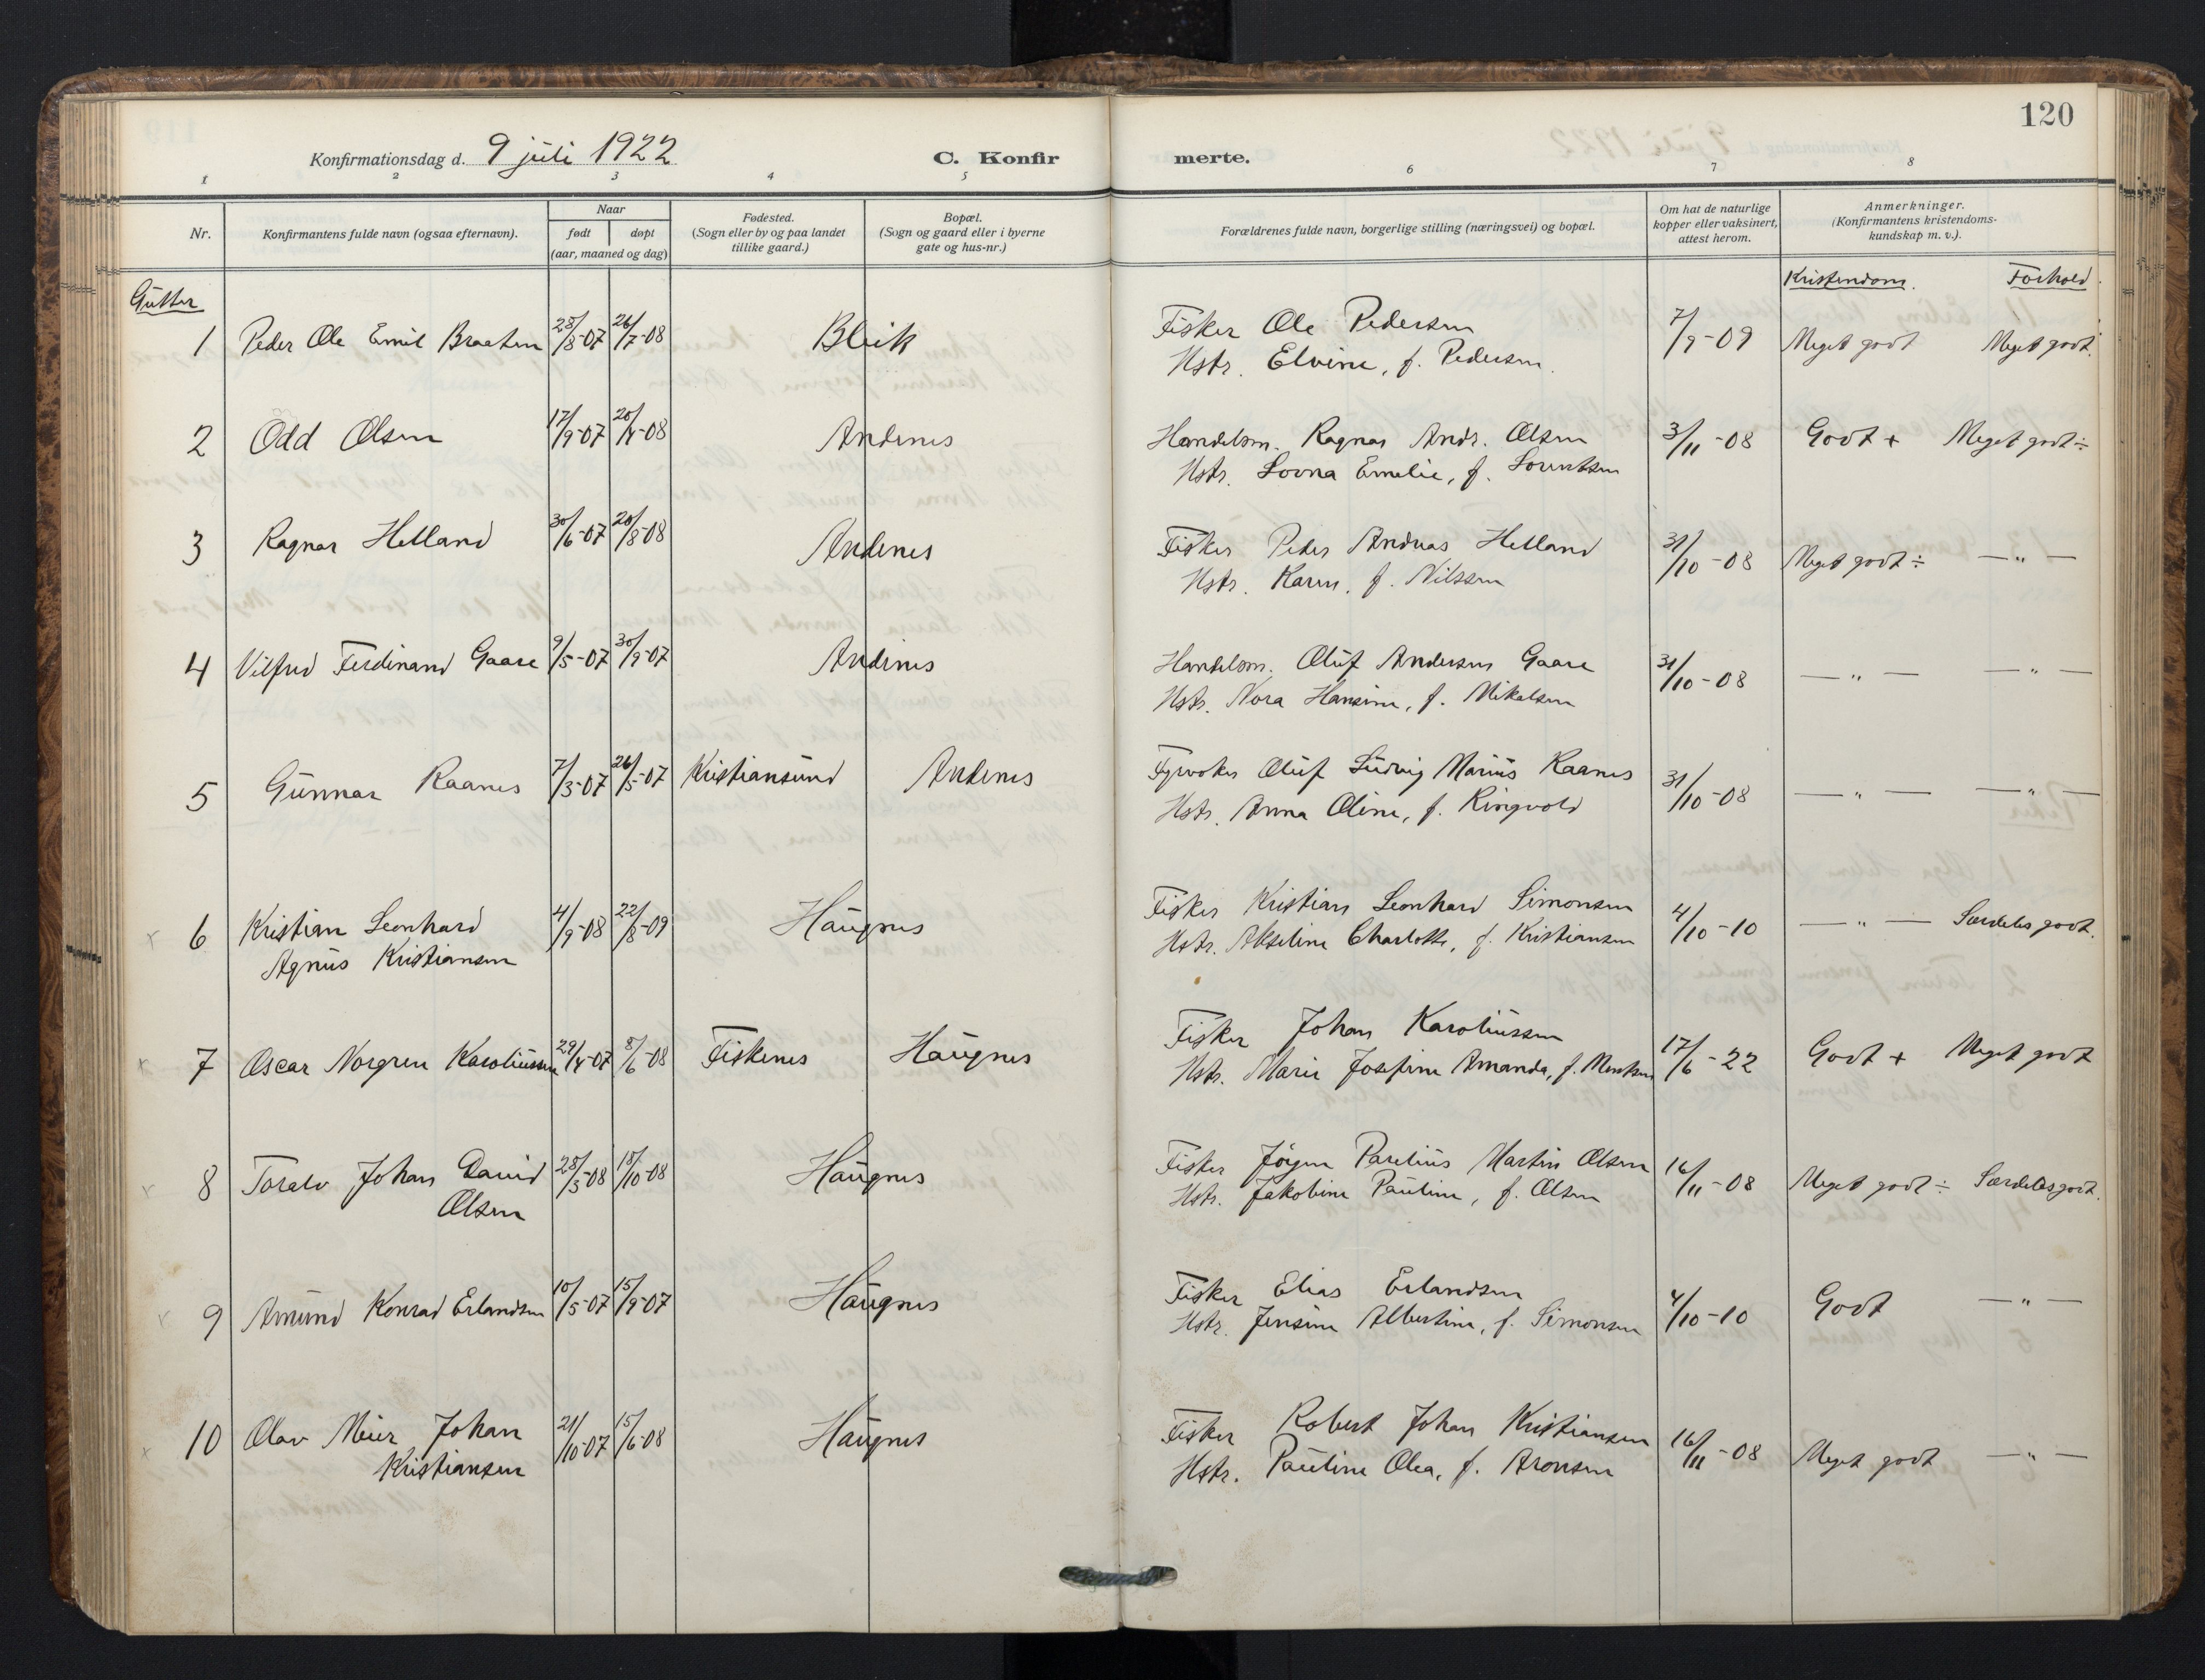 120
Konfirmationsdag d. 9 juli 1922 C. Konfir merte.
1 2 3 4 5 6 7 8
Nr. Konfirmantens fulde navn (ogsaa efternavn). Naar født døpt (aar, maaned og dag) Fødested. (Sogn eller by og paa landet tillike gaard.) Bopæl. (Sogn og gaard eller i byerne gate og hus-nr.) Forældrenes fulde navn, borgerlige stilling (næringsvei) og bopæl. Om hat de naturlige kopper eller vaksinert, attest herom. Anmerkninger. (Konfirmantens kristendoms-kundskap m. v.).
Gutter Kristendom. Forhold.
1 Peder Ole Emil Braaten 28/8-07 26/7-08 Bleik Fisker Ole Pedersen 7/9-09 Meget godt Meget godt.
Hstr. Elvine, f. Pedersen.
2 Odd Olsen 17/9-07 20/4-08 Andenes Handelsm. Ragnar Andr. Olsen 3/11-08 Godt + Meget godt ÷
Hstr. Lovna Emelie, f. Lorentsen
3 Ragnar Helland 30/6-07 20/8-08 Andenes Fisker Peder Andreas Helland 31/10-08 Meget godt ÷ — " —
Hstr. Karen, f. Nilssen
4 Vilfred Ferdinand Gaare 9/5-07 30/9-07 Andenes Handelsm. Oluf Andersen Gaare 31/10-08 — " — — " —
Hstr. Nora Hansine, f. Mikalsen
5 Gunnar Raanes 7/3-07 26/5-07 Kristiansund Andenes Fyrvokter Oluf Ludvig Marius Raanes 31/10-08 — " — — " —
Hstr. Anna Oline, f. Ringvold
6 Kristian Leonhard 4/9-08 22/8-09 Haugnes Fisker Kristian Leonhard Simonsen 4/10-10 — " — Særdeles godt.
Agnus Kristiansen Hstr. Akseline Charlotte, f. Kristiansen
7 Oscar Norgren Karoliussen 29/4-07 8/6-08 Fiskenes Haugnes Fisker Johan Karoliussen 17/6-22 Godt + Meget godt
Hstr. Marie Josefine Amanda, f. Mentsen
8 Toralv Johan David 28/3-08 18/10-08 Haugnes Fisker Jörgen Parelius Martin Olsen 16/11-08 Meget godt ÷ Særdeles godt.
Olsen Hstr. Jakobine Pauline, f. Olsen
9 Amund Konrad Erlandsen 10/5-07 15/9-07 Haugnes Fisker Elias Erlandsen 4/10-10 Godt — " —
Hstr. Jensine Albertine, f. Simonsen
10 Olav Meier Johan 21/10-07 15/6-08 Haugnes Fisker Robert Johan Kristiansen 16/11-08 Meget godt — " —
Kristiansen Hstr. Pauline Olea, f. Aronsen